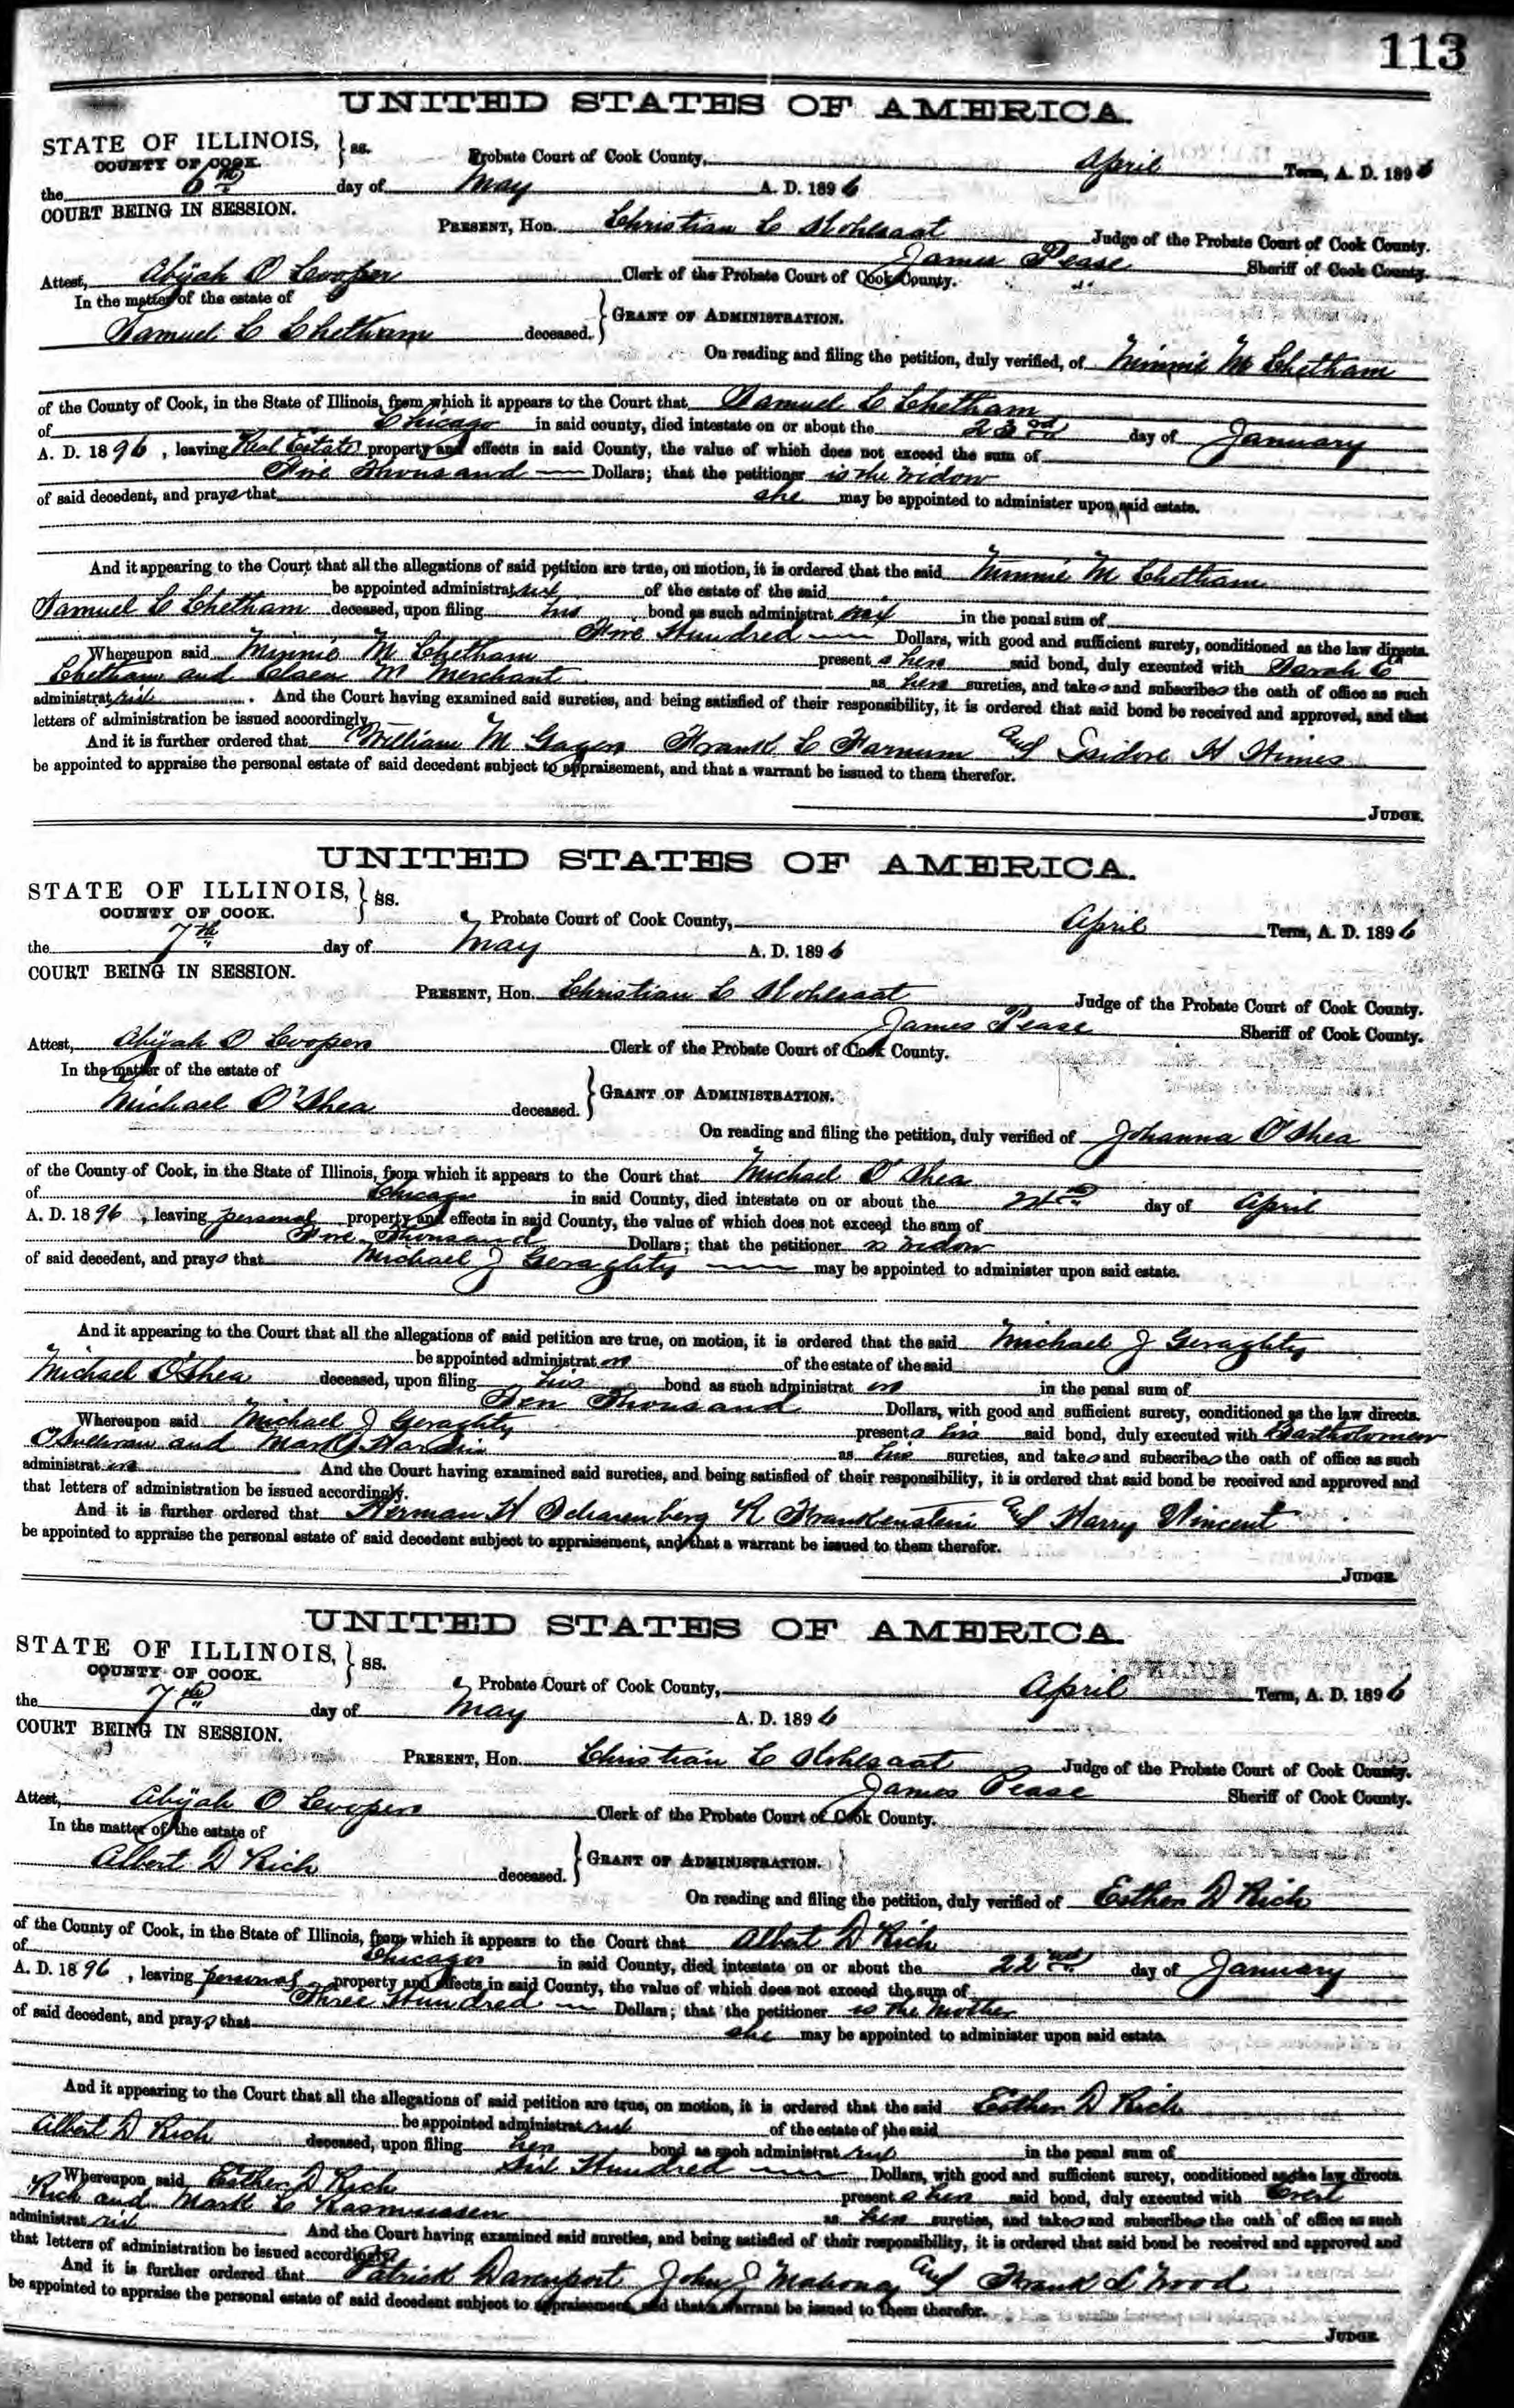 113
UNITED STATES OF AMERICA.
STATE OF ILLINOIS, } ss.
COUNTY OF COOK.
Probate Court of Cook County, April Term, A. D. 1896
the 6th day of May A. D. 1896
COURT BEING IN SESSION.
PRESENT, Hon. Christian C Kohlsaat Judge of the Probate Court of Cook County.
James Pease Sheriff of Cook County.
Attest, Abijah O Cooper Clerk of the Probate Court of Cook County.
In the matter of the estate of
Samuel C Chetham deceased. } GRANT OF ADMINISTRATION.
On reading and filing the petition, duly verified, of Minnie M Chetham
of the County of Cook, in the State of Illinois, from which it appears to the Court that Samuel C Chetham
of Chicago in said county, died intestate on or about the 23rd day of January
A. D. 1896, leaving Real Estate property and effects in said County, the value of which does not exceed the sum of
Five Thousand Dollars; that the petitioner is the widow
of said decedent, and prays that she may be appointed to administer upon said estate.
And it appearing to the Court that all the allegations of said petition are true, on motion, it is ordered that the said Minnie M Chetham
be appointed administratrix of the estate of the said
Samuel C Chetham deceased, upon filing his bond as such administratrix in the penal sum of
Five Hundred Dollars, with good and sufficient surety, conditioned as the law directs.
Whereupon said Minnie M Chetham presents her said bond, duly executed with Sarah C
Chetham and M Merchant as her sureties, and takes and subscribes the oath of office as such
administratrix. And the Court having examined said sureties, and being satisfied of their responsibility, it is ordered that said bond be received and approved, and that
letters of administration be issued accordingly.
And it is further ordered that William M Gagen Frank C Farnum and Isidore H Himes
be appointed to appraise the personal estate of said decedent subject to appraisement, and that a warrant be issued to them therefor.
JUDGE.
UNITED STATES OF AMERICA.
STATE OF ILLINOIS, } ss.
COUNTY OF COOK.
Probate Court of Cook County, April Term, A. D. 1896
the 7th day of May A. D. 1896
COURT BEING IN SESSION.
PRESENT, Hon. Christian C Kohlsaat Judge of the Probate Court of Cook County.
James Pease Sheriff of Cook County.
Attest, Abijah O Cooper Clerk of the Probate Court of Cook County.
In the matter of the estate of
Michael O'Shea deceased. } GRANT OF ADMINISTRATION.
On reading and filing the petition, duly verified of Johanna O'Shea
of the County of Cook, in the State of Illinois, from which it appears to the Court that Michael O'Shea
of Chicago in said County, died intestate on or about the day of April
A. D. 1896, leaving personal property and effects in said County, the value of which does not exceed the sum of
Five Thousand Dollars; that the petitioner is widow
of said decedent, and prays that Michael J Geraghty may be appointed to administer upon said estate.
And it appearing to the Court that all the allegations of said petition are true, on motion, it is ordered that the said Michael J Geraghty
be appointed administrator of the estate of the said
Michael O'Shea deceased, upon filing his bond as such administrator in the penal sum of
Ten Thousand Dollars, with good and sufficient surety, conditioned as the law directs.
Whereupon said Michael J Geraghty presents his said bond, duly executed with Bartholomew
O'Sullivan and Mark J as his sureties, and takes and subscribes the oath of office as such
administrator And the Court having examined said sureties, and being satisfied of their responsibility, it is ordered that said bond be received and approved and
that letters of administration be issued accordingly.
And it is further ordered that Herman H Scharenberg R Frankenstein and Harry Vincent
be appointed to appraise the personal estate of said decedent subject to appraisement, and that a warrant be issued to them therefor.
JUDGE.
UNITED STATES OF AMERICA.
STATE OF ILLINOIS, } ss.
COUNTY OF COOK.
Probate Court of Cook County, April Term, A. D. 1896
the 7th day of May A. D. 1896
COURT BEING IN SESSION.
PRESENT, Hon. Christian C Kohlsaat Judge of the Probate Court of Cook County.
James Pease Sheriff of Cook County.
Attest, Abijah O Cooper Clerk of the Probate Court of Cook County.
In the matter of the estate of
Albert D Rich deceased. } GRANT OF ADMINISTRATION.
On reading and filing the petition, duly verified of Esther D Rich
of the County of Cook, in the State of Illinois, from which it appears to the Court that Albert D Rich
of Chicago in said County, died intestate on or about the 22nd day of January
A. D. 1896, leaving personal property and effects in said County, the value of which does not exceed the sum of
Three Hundred Dollars; that the petitioner is the mother
of said decedent, and prays that she may be appointed to administer upon said estate.
And it appearing to the Court that all the allegations of said petition are true, on motion, it is ordered that the said Esther D Rich
be appointed administratrix of the estate of the said
Albert D Rich deceased, upon filing her bond as such administratrix in the penal sum of
Six Hundred Dollars, with good and sufficient surety, conditioned as the law directs.
Whereupon said Esther D Rich presents her said bond, duly executed with Evert
Rich and Mark C Rasmussen as her sureties, and takes and subscribes the oath of office as such
administratrix And the Court having examined said sureties, and being satisfied of their responsibility, it is ordered that said bond be received and approved and
that letters of administration be issued accordingly.
And it is further ordered that Patrick Davenport John J Mahoney and Frank L Wood
be appointed to appraise the personal estate of said decedent subject to appraisement, and that a warrant be issued to them therefor.
JUDGE.